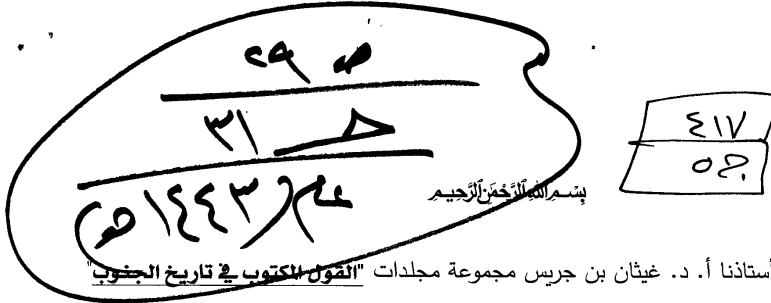 ص ٢٩
جـ ٣١
عام (١٤٤٣هـ)
٤١٧
ج٥
بسم الله الرحمن الرحيم
أستاذنا أ. د. غيثان بن جريس مجموعة مجلدات "القول المكتوب في تاريخ الجنوب"